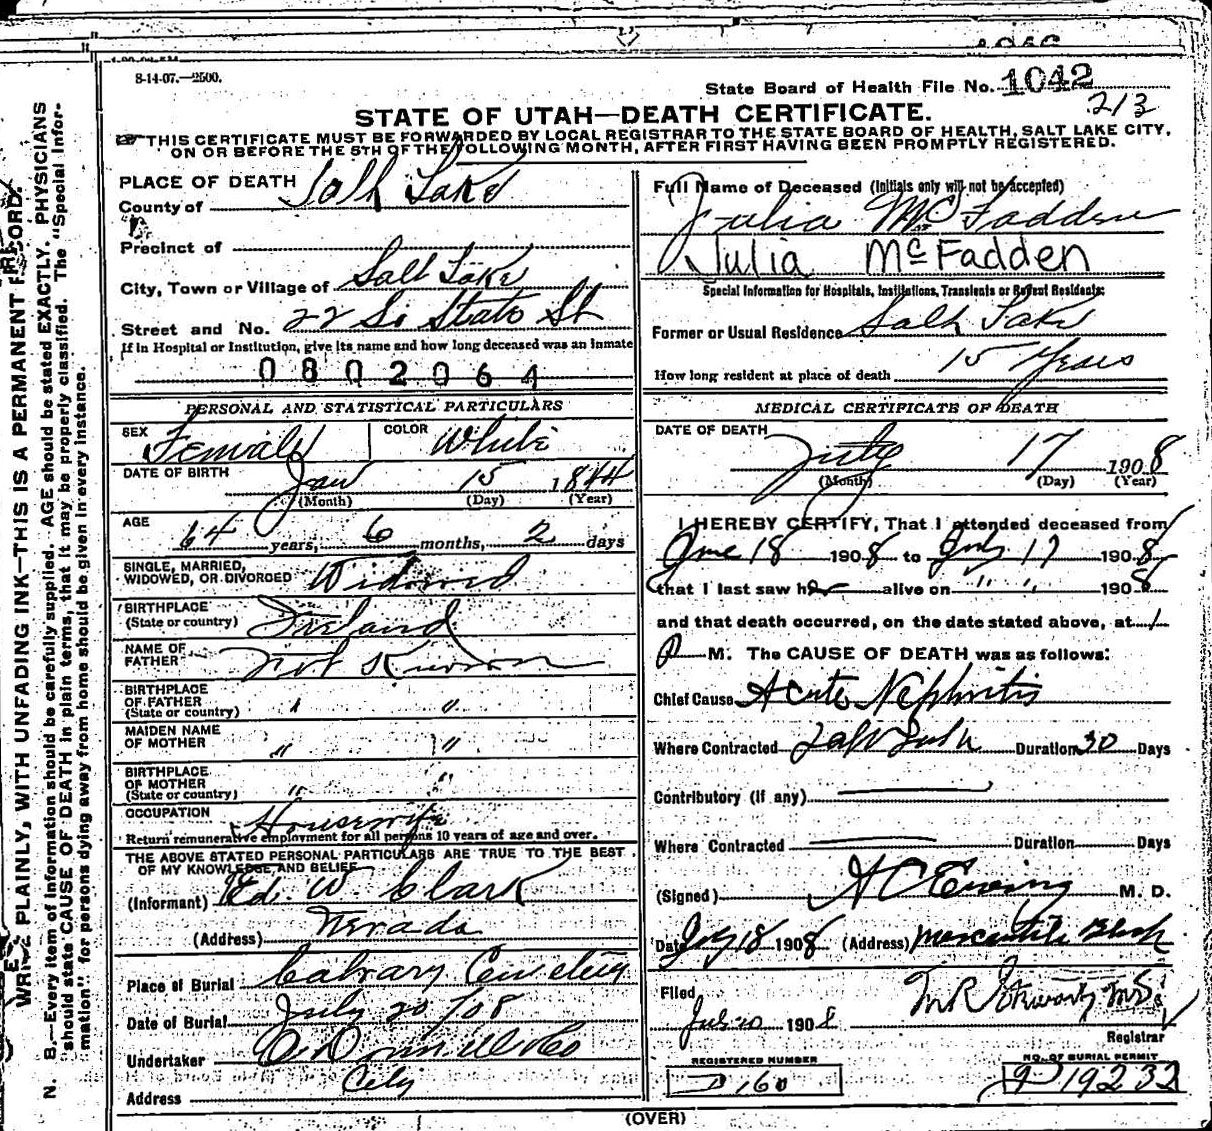 8-14-07.—2500.
State Board of Health File No. 1042
213
STATE OF UTAH—DEATH CERTIFICATE.
THIS CERTIFICATE MUST BE FORWARDED BY LOCAL REGISTRAR TO THE STATE BOARD OF HEALTH, SALT LAKE CITY,
ON OR BEFORE THE 5TH OF THE FOLLOWING MONTH, AFTER FIRST HAVING BEEN PROMPTLY REGISTERED.
WRITE PLAINLY, WITH UNFADING INK—THIS IS A PERMANENT RECORD.
N. B.—Every item of information should be carefully supplied. AGE should be stated EXACTLY. PHYSICIANS
should state CAUSE OF DEATH in plain terms, that it may be properly classified. The "Special Infor-
mation" for persons dying away from home should be given in every instance.
PLACE OF DEATH
County of Salt Lake
Precinct of
City, Town or Village of Salt Lake
Street and No. 22 So State St
If in Hospital or Institution, give its name and how long deceased was an inmate
0802064
PERSONAL AND STATISTICAL PARTICULARS
SEX Female COLOR White
DATE OF BIRTH Jan 15 1844
(Month) (Day) (Year)
AGE 64 years, 6 months, 2 days
SINGLE, MARRIED,
WIDOWED, OR DIVORCED Widowed
BIRTHPLACE
(State or country) Ireland
NAME OF
FATHER Not Known
BIRTHPLACE
OF FATHER
(State or country) " "
MAIDEN NAME
OF MOTHER " "
BIRTHPLACE
OF MOTHER
(State or country) " "
OCCUPATION Housewife
Return remunerative employment for all persons 10 years of age and over.
THE ABOVE STATED PERSONAL PARTICULARS ARE TRUE TO THE BEST
OF MY KNOWLEDGE AND BELIEF
(Informant) Ed. W. Clark
(Address) Nevada
Place of Burial Calvary Cemetery
Date of Burial July 20 '08
Undertaker O'Donnell & Co
Address City
Full Name of Deceased (Initials only will not be accepted)
Julia McFadden
Julia McFadden
Special Information for Hospitals, Institutions, Transients or Recent Residents:
Former or Usual Residence Salt Lake
How long resident at place of death 15 Years
MEDICAL CERTIFICATE OF DEATH
DATE OF DEATH
July 17 1908
(Month) (Day) (Year)
I HEREBY CERTIFY, That I attended deceased from
June 18 1908 to July 17 1908
that I last saw her alive on " " 1908
and that death occurred, on the date stated above, at 1
P M. The CAUSE OF DEATH was as follows:
Chief Cause Acute Nephritis
Where Contracted Salt Lake Duration 30 Days
Contributory (If any)
Where Contracted Duration Days
(Signed) A C Ewing M. D.
Date July 18 1908 (Address) Mercantile Block
Filed
Jul 20 1908
Registrar
REGISTERED NUMBER
D 160
NO. OF BURIAL PERMIT
D 19232
(OVER)